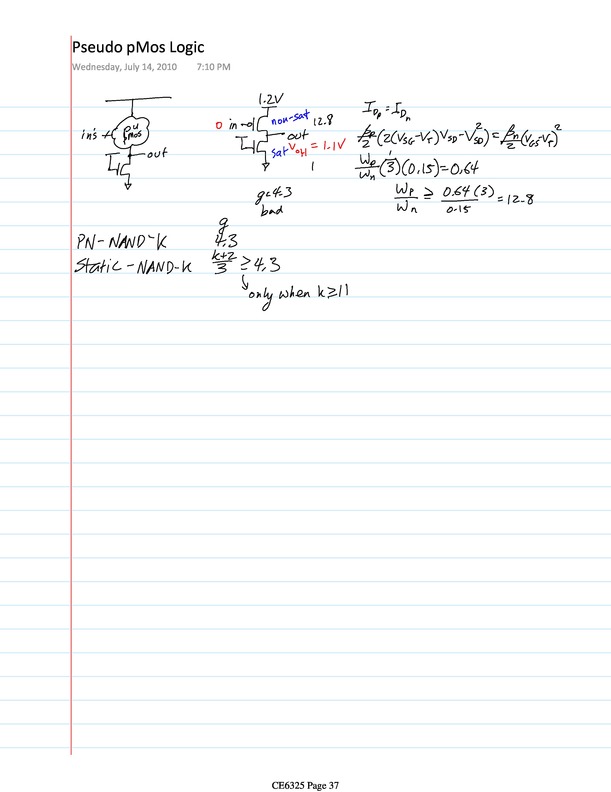 Pseudo pMos Logic
Wednesday, July 14, 2010 7:10 PM
in's
PU
pmos
out
1.2V
0 in
non-sat 12.8
out
sat V_OH = 1.1V
1
g=4.3
bad
I_Dp = I_Dn
βp/2 (2(V_SG-V_T)V_SD-V_SD²) = βn/2 (V_GS-V_T)²
Wp/Wn (1/3)(0.15)=0.64
Wp/Wn ≥ 0.64(3)/0.15 = 12.8
g
PN-NAND-K 4.3
Static-NAND-K k+2/3 ≥ 4.3
only when k≥11
CE6325 Page 37